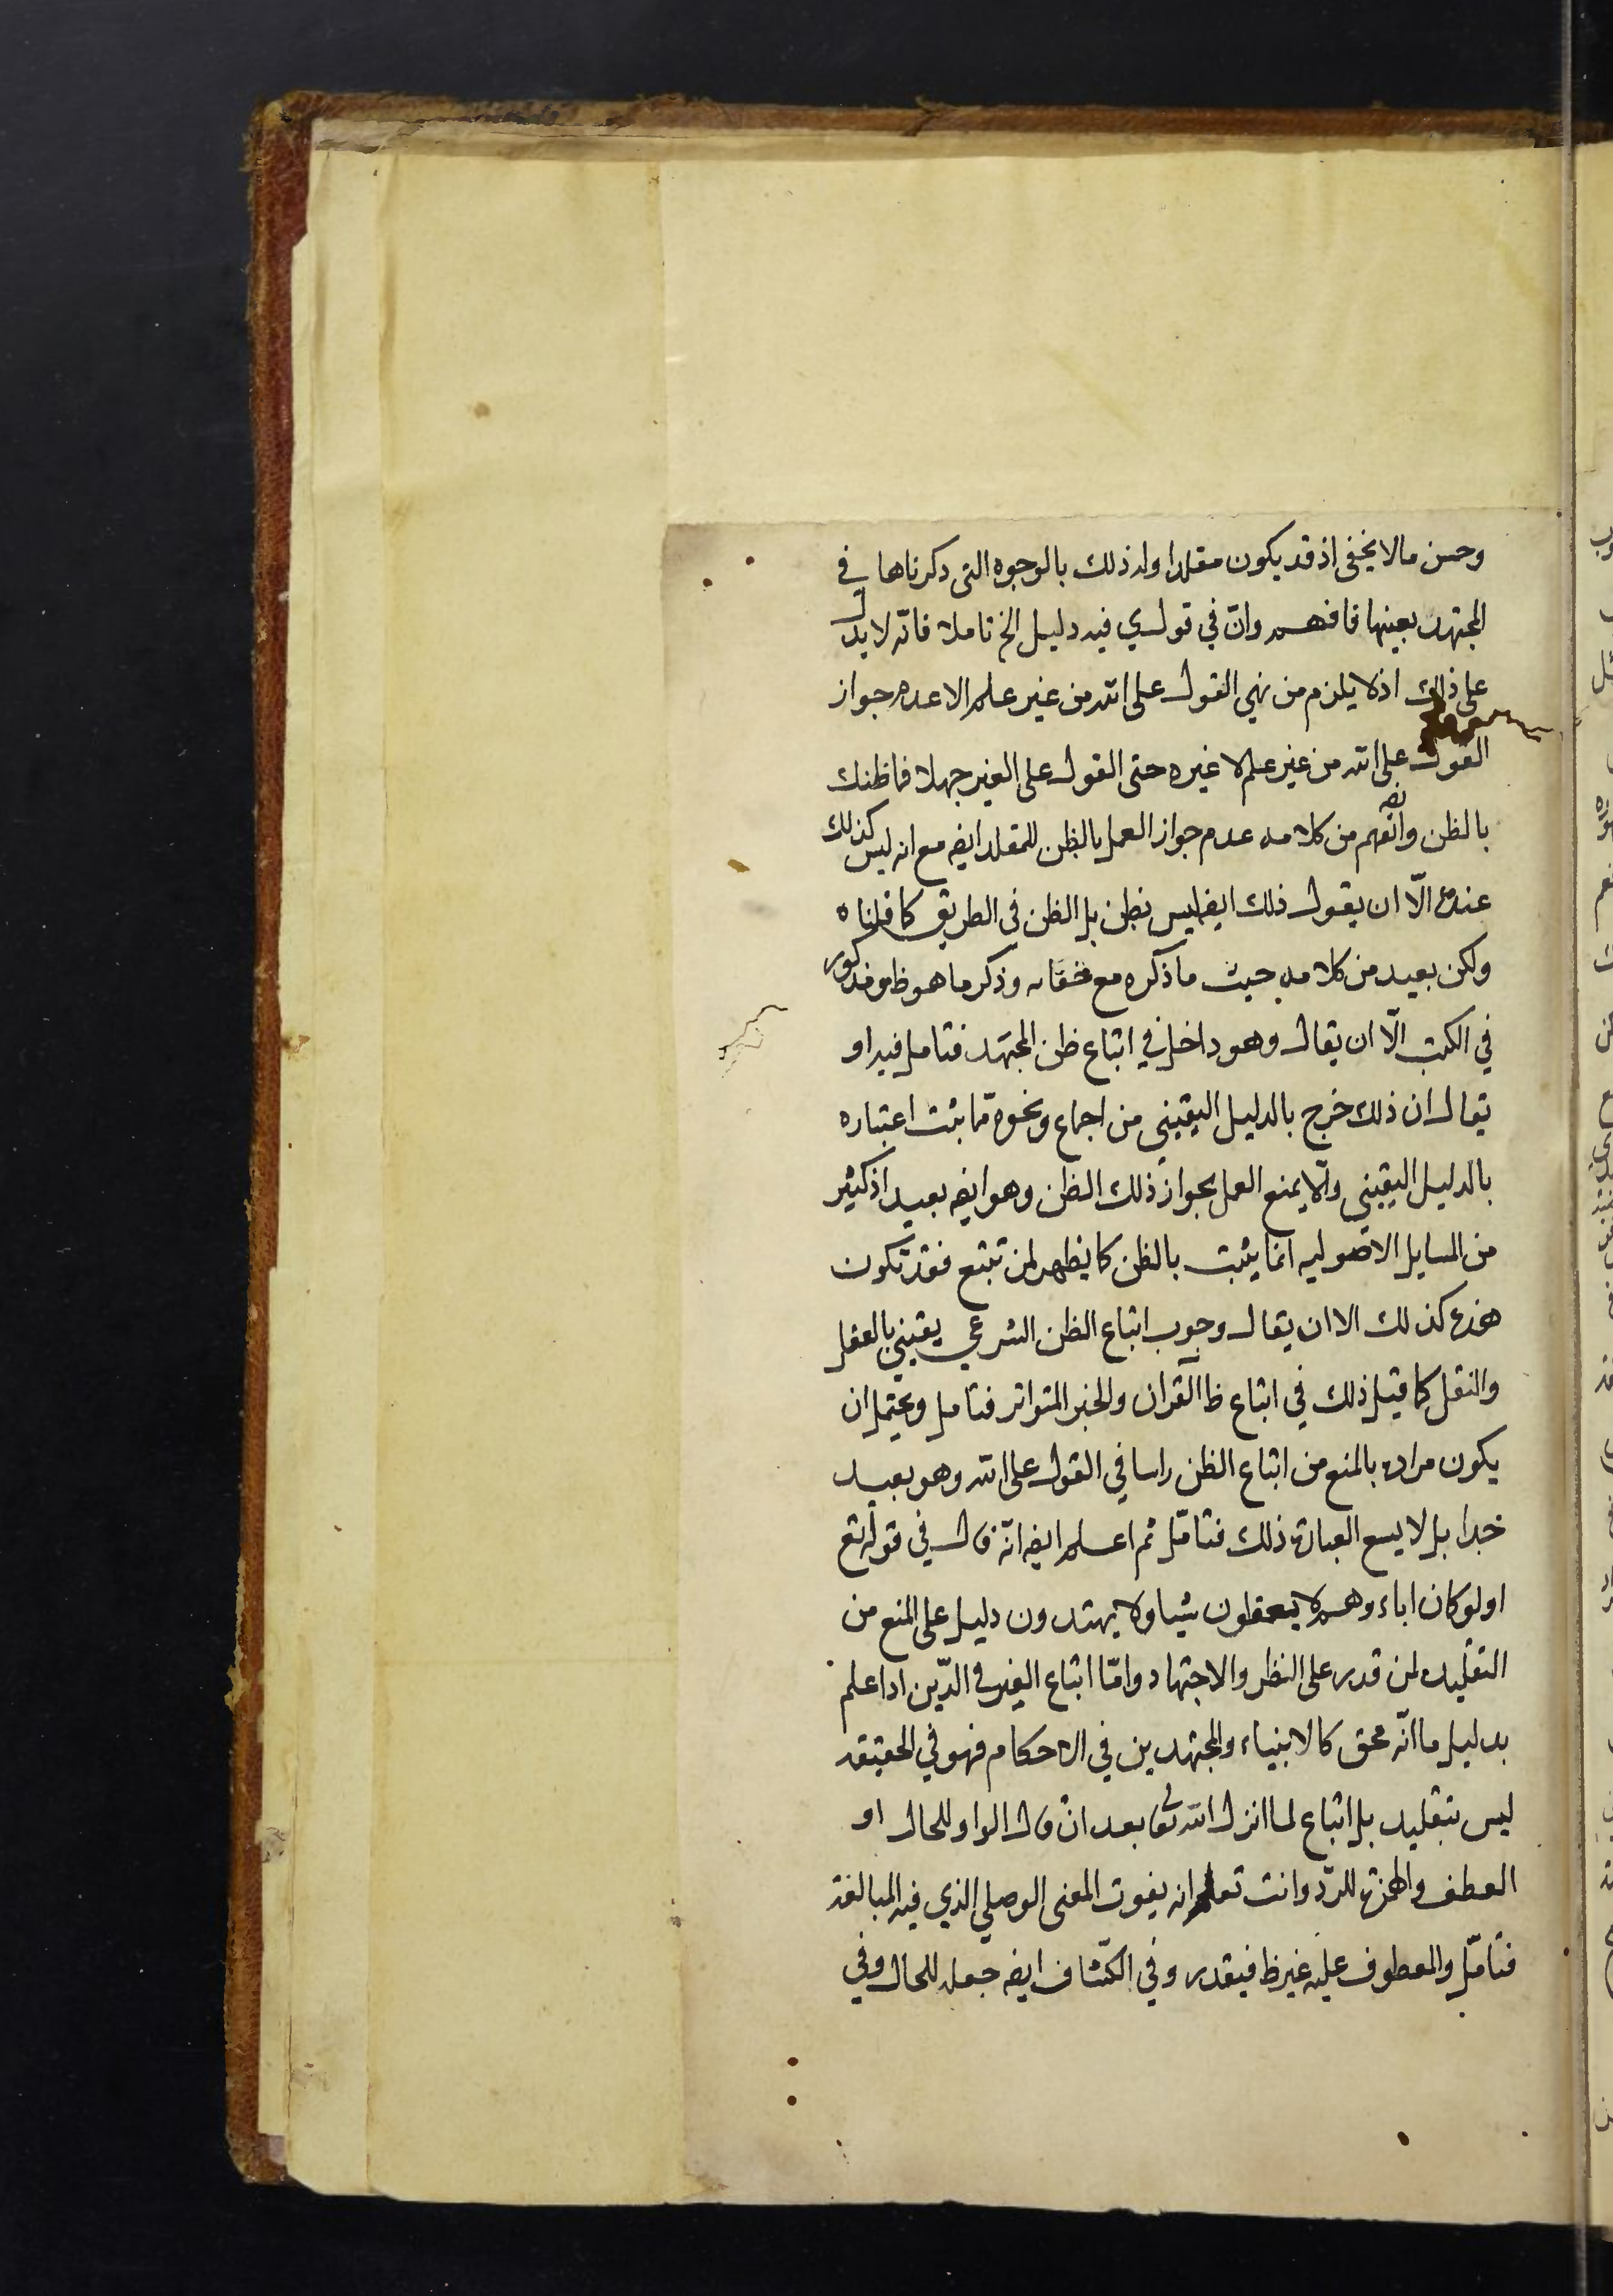 وحسن مالا يخفى اذ قد يكون مقلدا وله ذلك بالوجوه التى ذكرناها في
المجتهد بعينها فافهم وان في قولي فيه دليل الخ تاملا فانه لا يدل
على ذلك اذ لا يلزم من نهي القول على الله من غير علم الا عدم جواز
القول على الله من غير علم لا غيره حتى القول على الغير جهلا فما ظنك
بالظن وانه يفهم من كلامه عدم جواز العمل بالظن للمقلد ايضه مع انه ليس كذلك
عنده الّا ان يقول ذلك ايضه ليس بظن بل الظن فى الطريق كما قلناه
ولكن بعيد من كلامه حيث ما ذكره مع خفائه وذكر ما هو ظ ومذكور
في الكتب الّا ان يقال وهو داخل في اتباع ظن المجتهد فتامل فيه او
يقال ان ذلك خرج بالدليل اليقيني من اجماع ونحوه مما ثبت اعتباره
بالدليل اليقيني والّا يمنع العمل بجواز ذلك الظن وهو ايضه بعيد اذ كثير
من المسايل الاصوليه انما يثبت بالظن كما يظهر لمن تتبع فقد تكون
هذه كذلك الا ان يقال وجوب اتباع الظن الشرعي يقيني بالعقل
والنقل كما قيل ذلك في اتباع ظ القرآن والخبر المتواتر فتامل ويحتمل ان
يكون مراده بالمنع من اتباع الظن راسا في القول على الله وهو بعيد
جدا بل لا يسع العبارة ذلك فتامّل ثم اعلم ايضه انّه قال في قوله تع
اولو كان اباءوهم لا يعقلون شيا ولا يهتدون دليل على المنع من
التقليد لمن قدر على النظر والاجتهاد وامّا اتباع الغير في الدّين اذا علم
بدليل ما انّه محق كالانبياء والمجتهدين في الاحكام فهو في الحقيقه
ليس بتقليد بل اتباع لما انزل الله تعالى بعد ان قال الواو للحال او
العطف والهمزة للردّ وانت تعلم انه يفوت المعنى الوصلي الذي فيه المبالغة
فتامّل والمعطوف عليه غير ظ فيقدر وفي الكشاف ايضه جعله للحال وفي